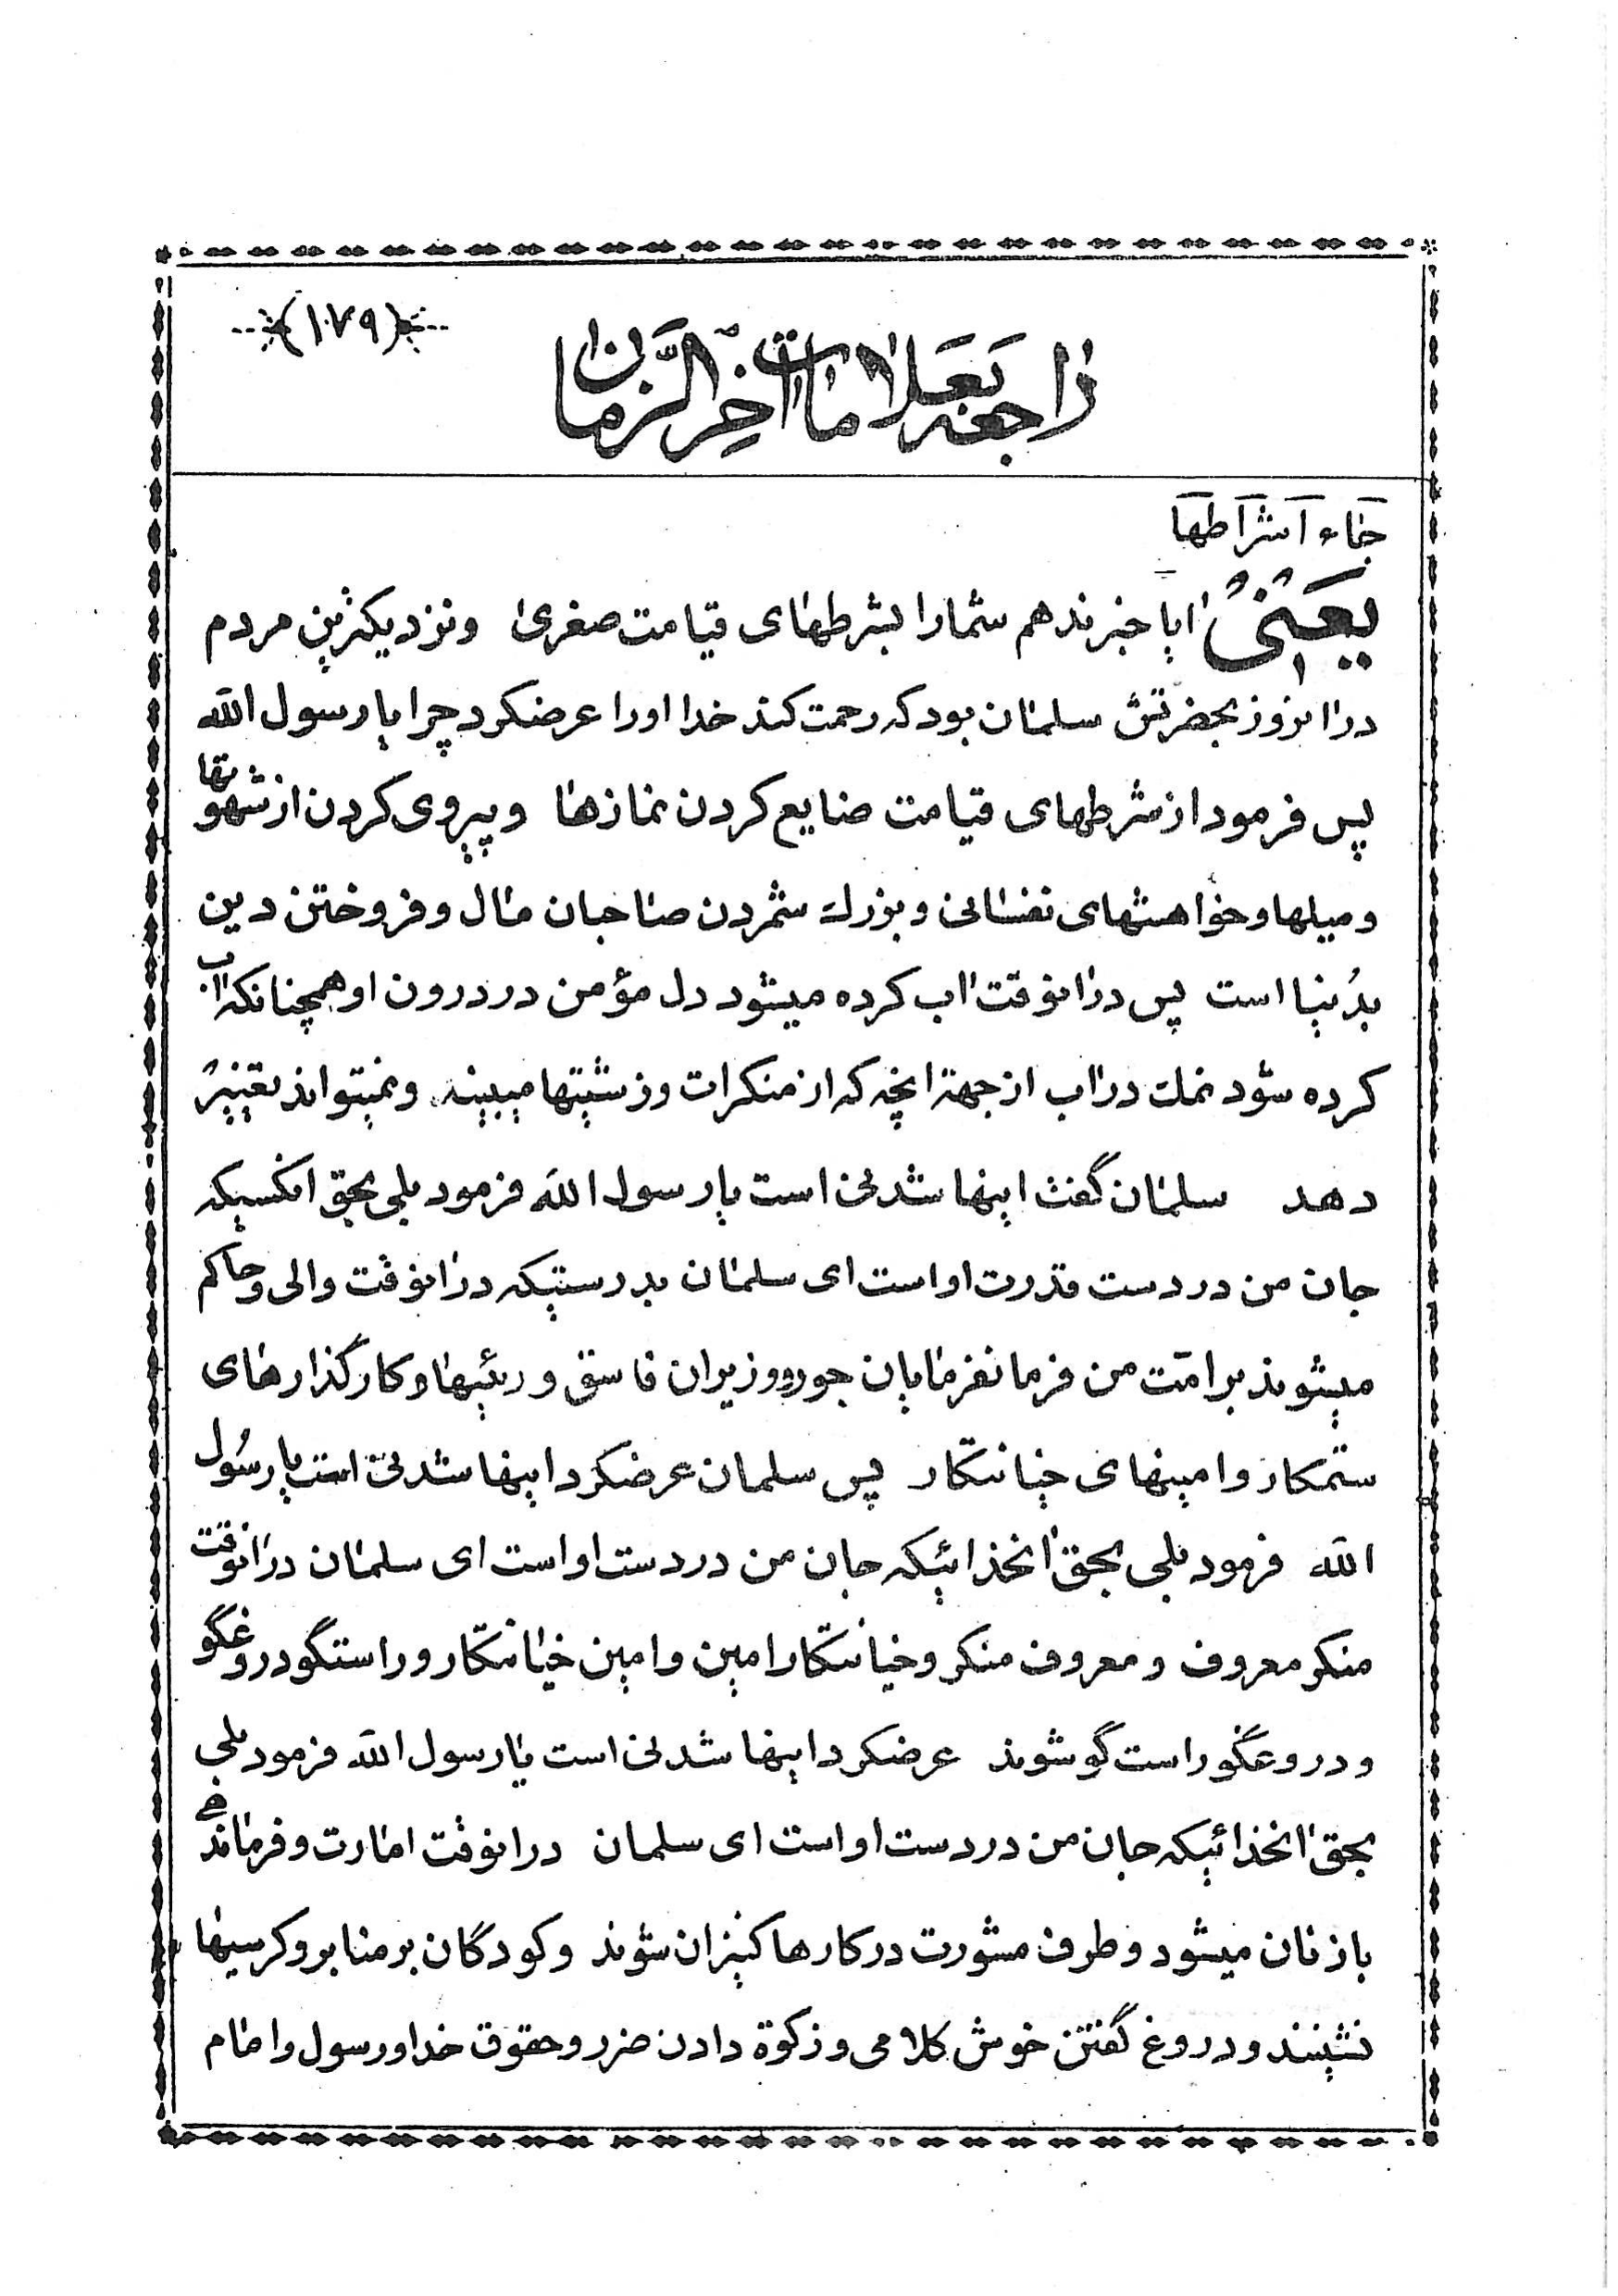 (۱۰۷۹)
راجعه بعلامات آخر الزمان
جَاءَ اَشْرَاطُهَا
یعنی ایا خبر ندهم شمارا بشرطهای قیامت صغری ونزدیکترین مردم
درانروز بحضرتش سلمان بود که رحمت کند خدا اورا عرضکرد چرا یا رسول الله
پس فرمود از شرطهای قیامت ضایع کردن نمازها وپیروی کردن از شهوتها
ومیلها وخواهشهای نفسانی وبزرك شمردن صاحبان مال وفروختن دین
بدُنیا است پس درانوقت اب کرده میشود دل مؤمن در درون او همچنانکه اب
کرده شود نمك دراب از جهة انچه که از منکرات وزشتیها میبیند ونمیتواند تغییر
دهد سلمان گفت اینها شدنی است یا رسول الله فرمود بلی بحق انکسیکه
جان من در دست قدرت او است ای سلمان بدرستیکه درانوقت والی وحاکم
میشوند بر امّت من فرمانفرمایان جور ووزیران فاسق ورئیها وکارگذارهای
ستمکار وامینهای خیانتکار پس سلمان عرضکرد اینها شدنی است یا رسُول
الله فرمود بلی بحق انخدائیکه جان من در دست او است ای سلمان درانوقت
منکر معروف ومعروف منکر وخیانتکار امین وامین خیانتکار وراستگو دروغگو
ودروغگو راست گو شوند عرضکرد اینها شدنی است یا رسول الله فرمود بلی
بحق انخدائیکه جان من در دست او است ای سلمان درانوقت امارت وفرماندهی
با زنان میشود وطرف مشورت در کارها کنیزان شوند وکودکان بر منابر وکرسیها
نشینند ودروغ گفتن خوش کلامی وزکوة دادن ضرر وحقوق خدا ورسول وامام